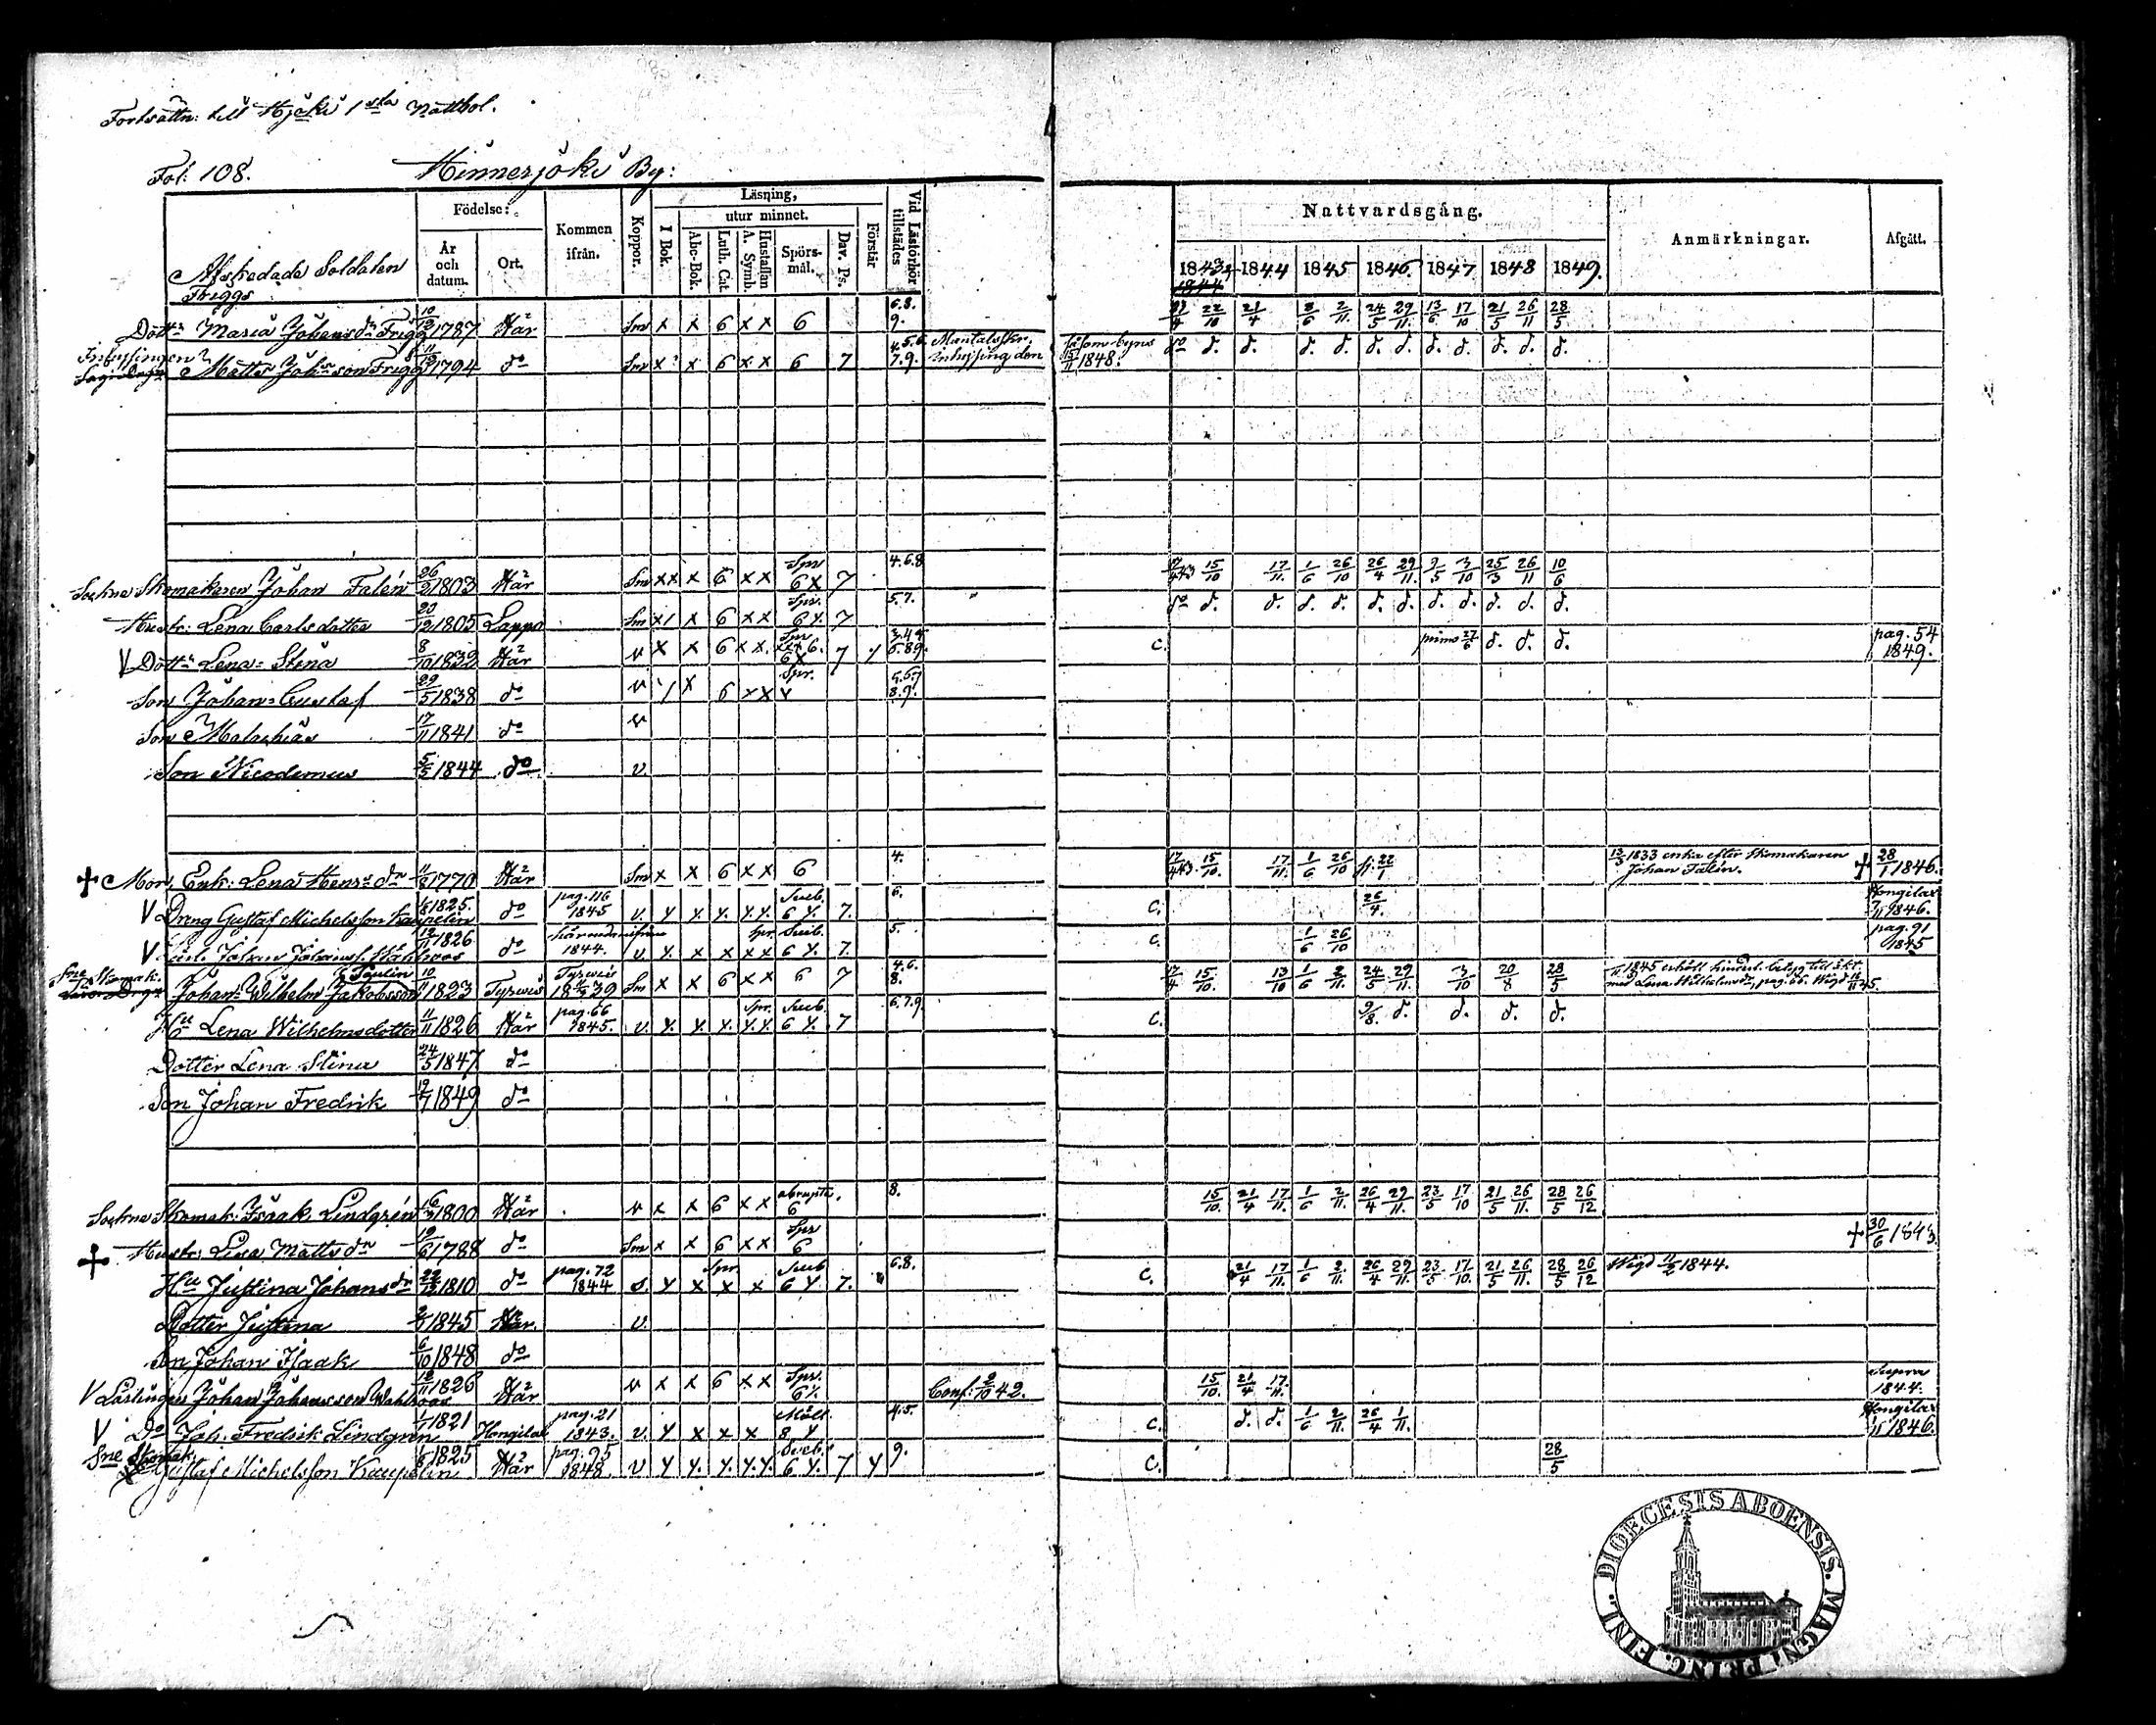 Fortsättn: till Hjoki 1sta Natthol.
Fol: 108. Hinnerjoki By:
Födelse: År och datum. Ort. Kommen ifrån. Koppor. Läsning, I Bok. utur minnet. Abc-Bok. Luth. Cat. Hustaflan A. Symb. Spörsmål. Dav. Ps. Förstår Vid Läsförhör tillstädes Nattvardsgång. 1843 1844 1844 1845 1846 1847 1848 1849. Anmärkningar. Afgått.
Afskedade Soldaten
Friggs
Dottr Maria Johansdr Frigg 10/12 1787 Här Sm x x 6 x x 6 6.8. 9. 22/10 21/4 2/11 24/5 29/11 13/6 17/10 21/5 26/11 28/5
Matts Johsson Frigg 1794 do Sm x x 6 x x 6 7 4.5.6. 7.9. Mantalsskr. såsom byns do d. d. d. d. d. d. d. d. d. d. d.
inhysing den 15/11 1848.
Sockne Skomakaren Johan Falén 26/2 1803 Här Sm x x x 6 x x Spr 6 x 7 4.6.8 15/10 17/11 1/6 26/10 26/4 29/11 9/5 3/10 25/3 26/11 10/6
Hustr: Lena Carlsdotter 20/12 1805 Lappo Sm x x 6 x x Spr. 6 y. 7 5.7. do d. d. d. d. d. d. d. d. d. d. d.
V Dottr Lena Stina 8/10 1832 Här v x x 6 x x. Spr 6 x 7 C. primo 27/6 d. d. d. pag. 54 1849.
Son Johan Gustaf 29/5 1838 do v x 6 x x Spr. y 5.6.7 8.9.
Son Malachias 17/11 1841 do v
Son Nicodemus 5/5 1844 do v.
+ Mor, Enk: Lena Hensr dr 11/8 1770 Här Sm x x 6 x x 6 4. 17/4 43. 15/10. 17/11. 1/6 26/10 22/1 13/3 1833 enka efter Skomakaren Johan Falin. + 28/1 1846.
V Dreng Gustaf Michelsson Kaupelin 1/8 1825. do pag. 116 1845 v. y y. y. y.y. Sveb. 6 y. 7. 6. C. 26/4. Hongilax 7/11 1846.
V Johan Johanss. Wahlroos 12/11 1826 do härnedanifrån 1844. v. y. x x x x Spr. Sveb. 6 y. 7. 5. C. 1/6 26/10 pag. 91 1845
Sne Skomak. Johan Wilhelm Jakobsson Paulin 10/11 1823 Tyrwis Tyrwis 1839 Sm x x 6 x x 6 7 4.6. 8. 17/4 15/10. 13/10 1/6 2/11. 24/5 29/11. 3/10 20/8 28/5 1845 erhöll hinderl. betyg till äkt. med Lena Wilhelmsdr, pag. 66. Wigd 45.
Hu Lena Wilhelmsdotter 11/11 1826 Här pag. 66 1845. v. y. y. y. y.y. Spr. Sveb. 6 y. 7 6.7.9. C. 9/8. d. d. d. d.
Dotter Lena Stina 24/5 1847 do
Son Johan Fredrik 19/7 1849 do
Sockne Skomak: Isaak Lindgrén 6/3 1800 Här v x x 6 x x abrupte. 6 8. 15/10. 21/4 17/11. 1/6 2/11. 26/4 29/11. 23/5 17/10 21/5 26/11. 28/5 26/12
+ Hustr: Lisa Matts dr 19/6 1788 do Sm x x 6 x x Spr 6 + 30/6 1843.
Hu Justina Johans dr 22/12 1810 do pag. 72 1844 s. y x x x Spr. Sveb 6 y 7. 6.8. C. 21/4 17/11. 1/6 2/11. 26/4 29/11. 23/5 17/10. 21/5 26/11. 28/5 26/12 Wigd 11/2 1844.
Dotter Justina 1845 Här. v.
Son Johan Isaak 6/10 1848 do
V Lärlingen Johan Johansson Wahlroos 12/11 1826 Här v x x 6 x x Spr. 6 y. Conf: 2/10 42. 15/10. 21/4 17/11. Supra 1844.
V Do Joh. Fredrik Lindgren 1821 Hongilax pag. 21 1843. v. y x x x Möll. 8 y 4.5. C. d. d. 1/6 2/11. 26/4 1/11. Hongilax 1846.
Sne Skomak. Gustaf Michelsson Kaupelin 1/8 1825 Här pag. 95 1848 v y y. y. y.y. Sveb. 6 y. 7 y 9. C. 28/5
DIOECESIS ABOENSIS. MAGNI PRINC. FINL.